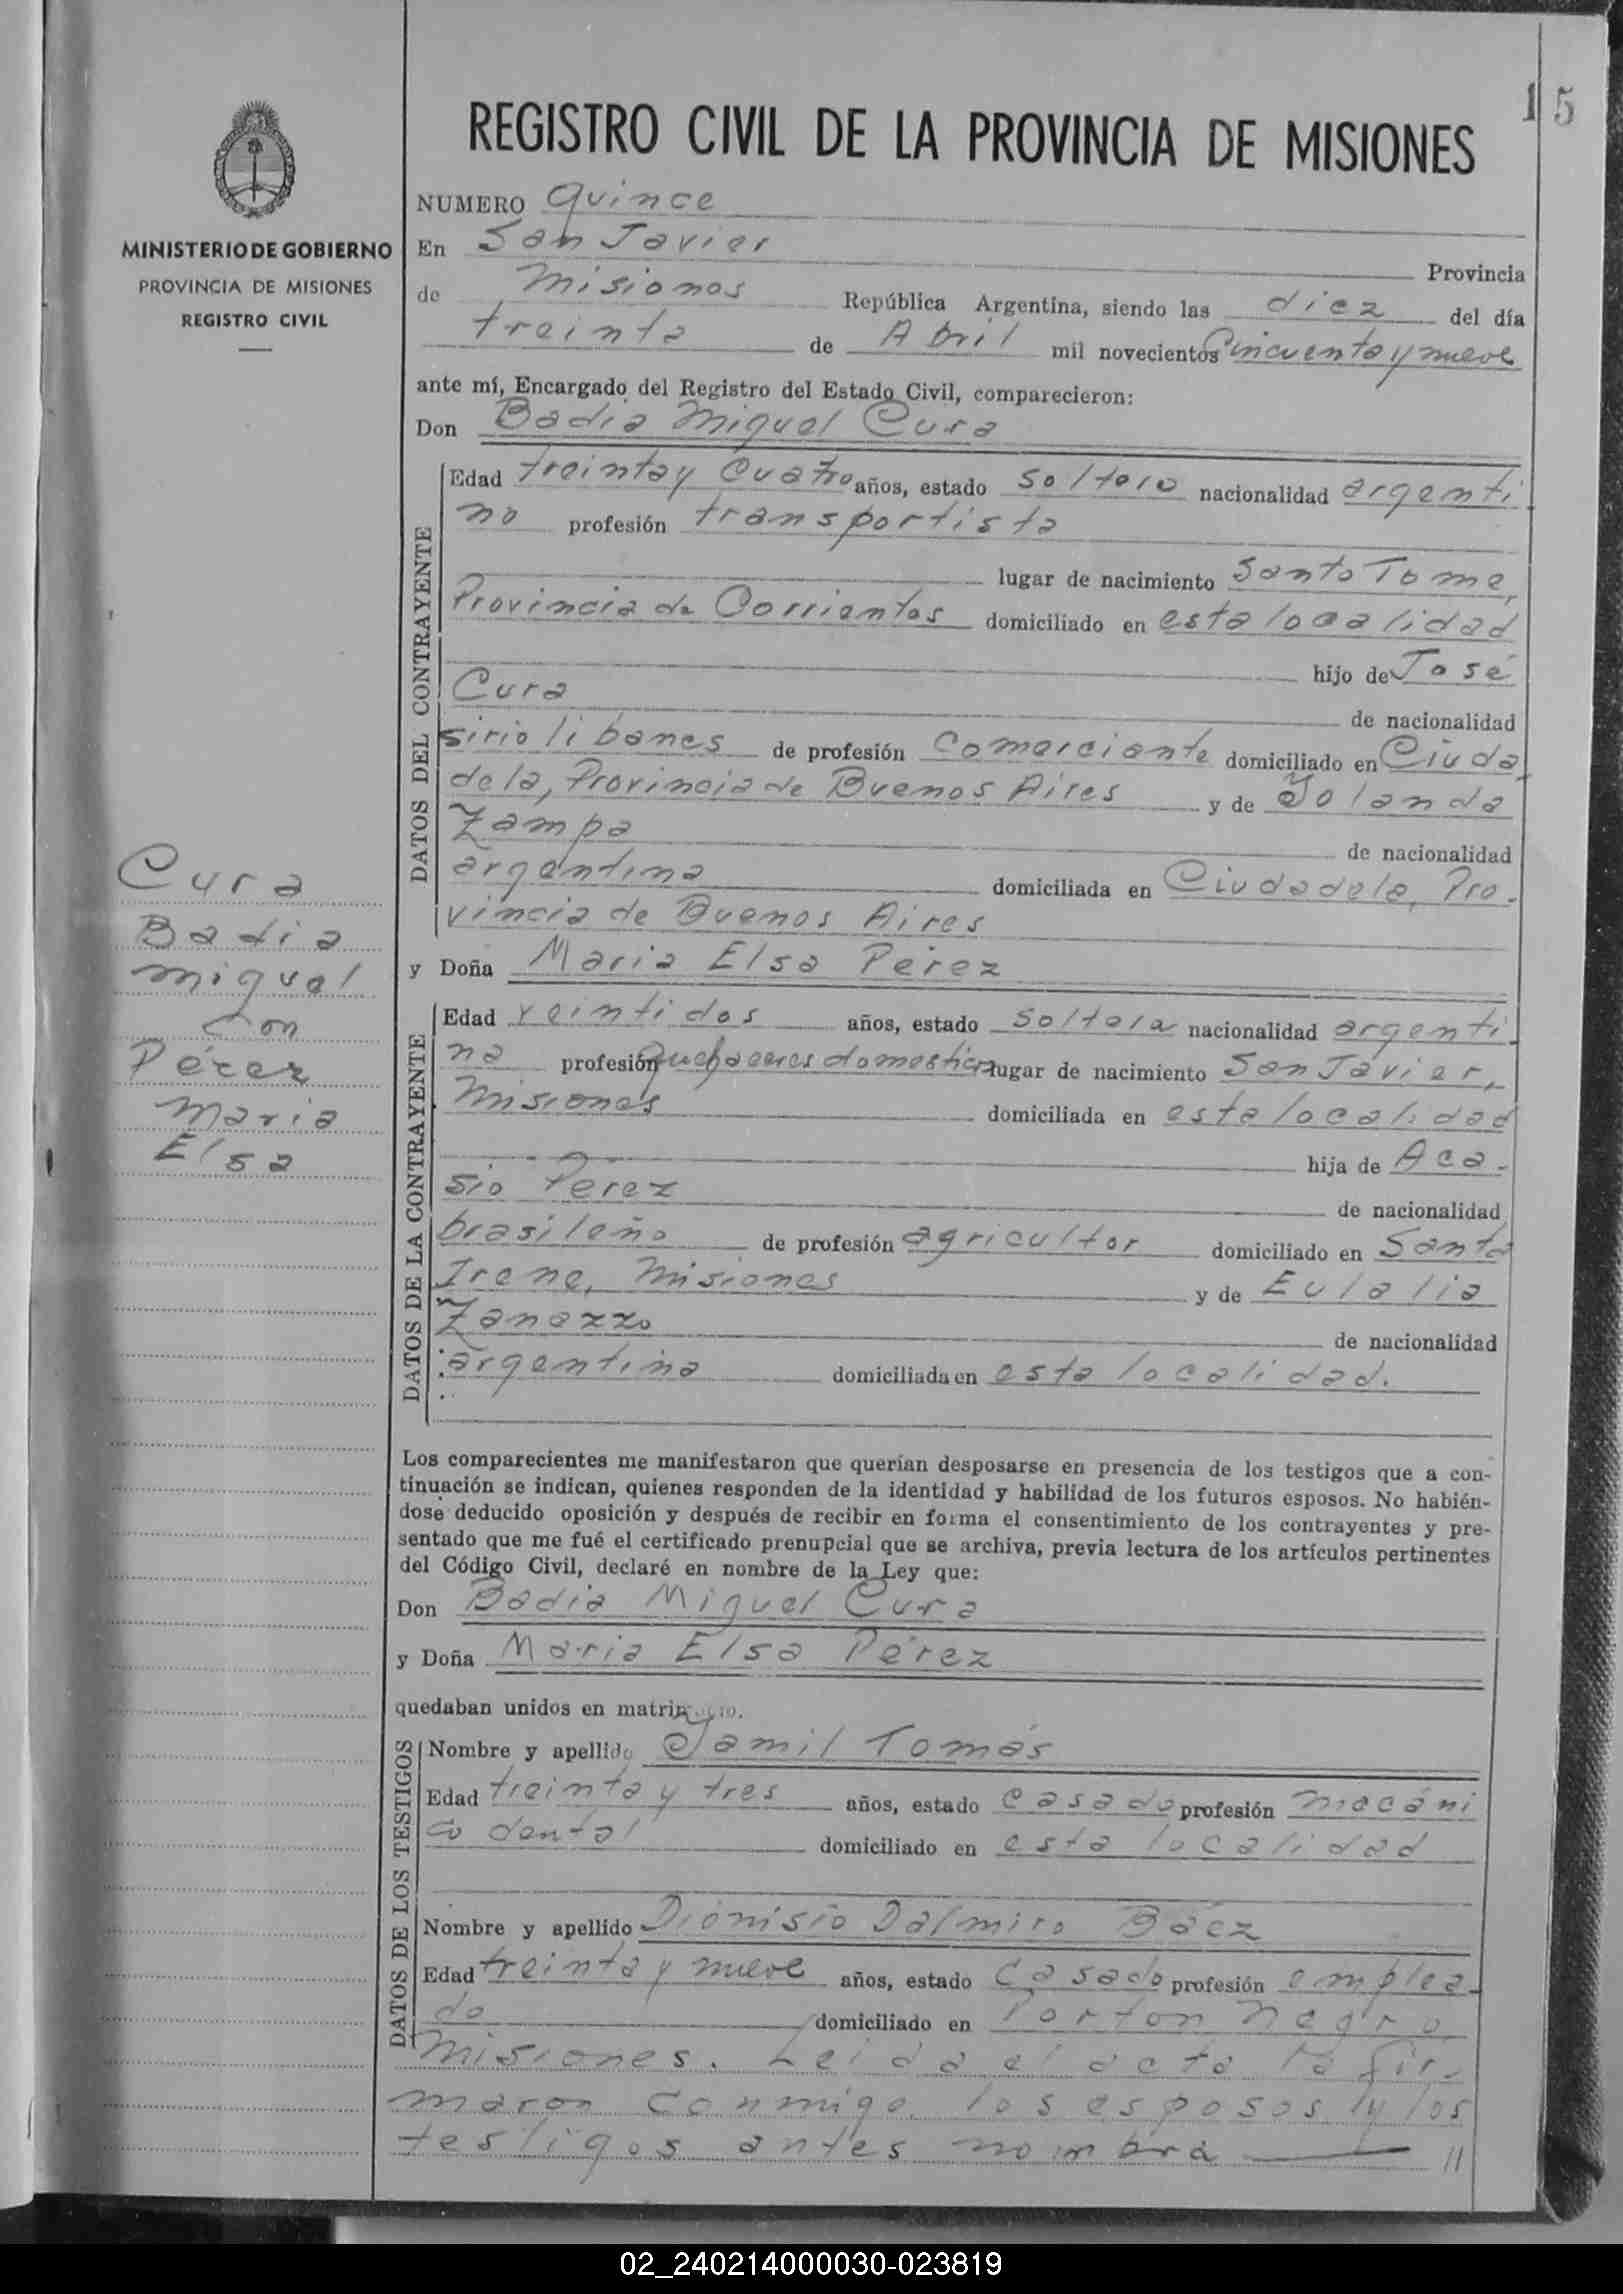 15
REGISTRO CIVIL DE LA PROVINCIA DE MISIONES
MINISTERIO DE GOBIERNO
PROVINCIA DE MISIONES
REGISTRO CIVIL
NUMERO Quince
En San Javier Provincia
de Misiones República Argentina, siendo las diez del día
treinta de Abril mil novecientos Cincuenta y nueve
ante mí, Encargado del Registro del Estado Civil, comparecieron:
Don Badia Miguel Cura
DATOS DEL CONTRAYENTE
Edad treinta y Cuatro años, estado Soltero nacionalidad argenti
no profesión transportista
lugar de nacimiento Santo Tome,
Provincia de Corrientes domiciliado en esta localidad
hijo de José
Cura de nacionalidad
sirio libanes de profesión Comerciante domiciliado en Ciuda
dela, Provincia de Buenos Aires y de Yolanda
Zampa de nacionalidad
argentina domiciliada en Ciudadela, Pro-
vincia de Buenos Aires
Cura
Badia
Miguel
Con
Pérez
Maria
Elsa
y Doña Maria Elsa Pérez
DATOS DE LA CONTRAYENTE
Edad veintidos años, estado Soltera nacionalidad argenti
na profesión quehaceres domesticos lugar de nacimiento San Javier,
Misiones domiciliada en esta localidad
hija de Aca-
sio Perez de nacionalidad
brasileño de profesión agricultor domiciliado en Santa
Irene, Misiones y de Eulalia
Zanazzo de nacionalidad
argentina domiciliada en esta localidad.
Los comparecientes me manifestaron que querían desposarse en presencia de los testigos que a con-
tinuación se indican, quienes responden de la identidad y habilidad de los futuros esposos. No habién-
dose deducido oposición y después de recibir en forma el consentimiento de los contrayentes y pre-
sentado que me fué el certificado prenupcial que se archiva, previa lectura de los artículos pertinentes
del Código Civil, declaré en nombre de la Ley que:
Don Badia Miguel Cura
y Doña Maria Elsa Pérez
quedaban unidos en matrimonio.
DATOS DE LOS TESTIGOS
Nombre y apellido Jamil Tomás
Edad treinta y tres años, estado Casado profesión mecáni
co dental domiciliado en esta localidad
Nombre y apellido Dionisio Dalmiro Báez
Edad treinta y nueve años, estado Casado profesión emplea-
do domiciliado en Porton Negro,
Misiones. Leida el acta la fir-
maron conmigo los esposos y los
testigos antes nombra //
02_240214000030-023819